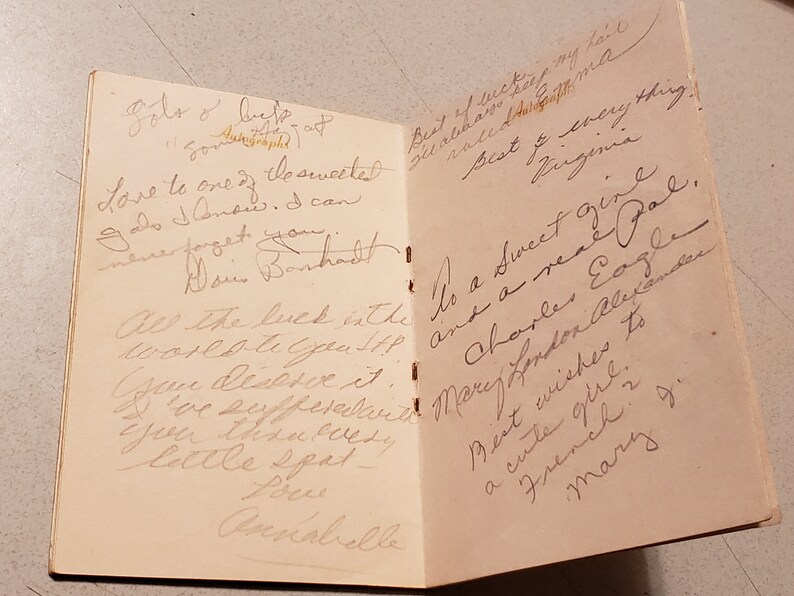 Gobs o' luck
Autographs
Love to one of the sweetest
gals I know. I can
never forget you.
Doris Barnhardt
All the luck in the
world to you
you deserve it.
I've suffered with
you thru every
little spat –
Love
Annabelle
Best of luck –
I'll always keep my hair
rolled Emma
Autographs
Best of everything.
Virginia
To a sweet girl
and a real Pal.
Charles Eagle
Mary London Alexander
Best wishes to
a cute girl.
French?
Mary J.